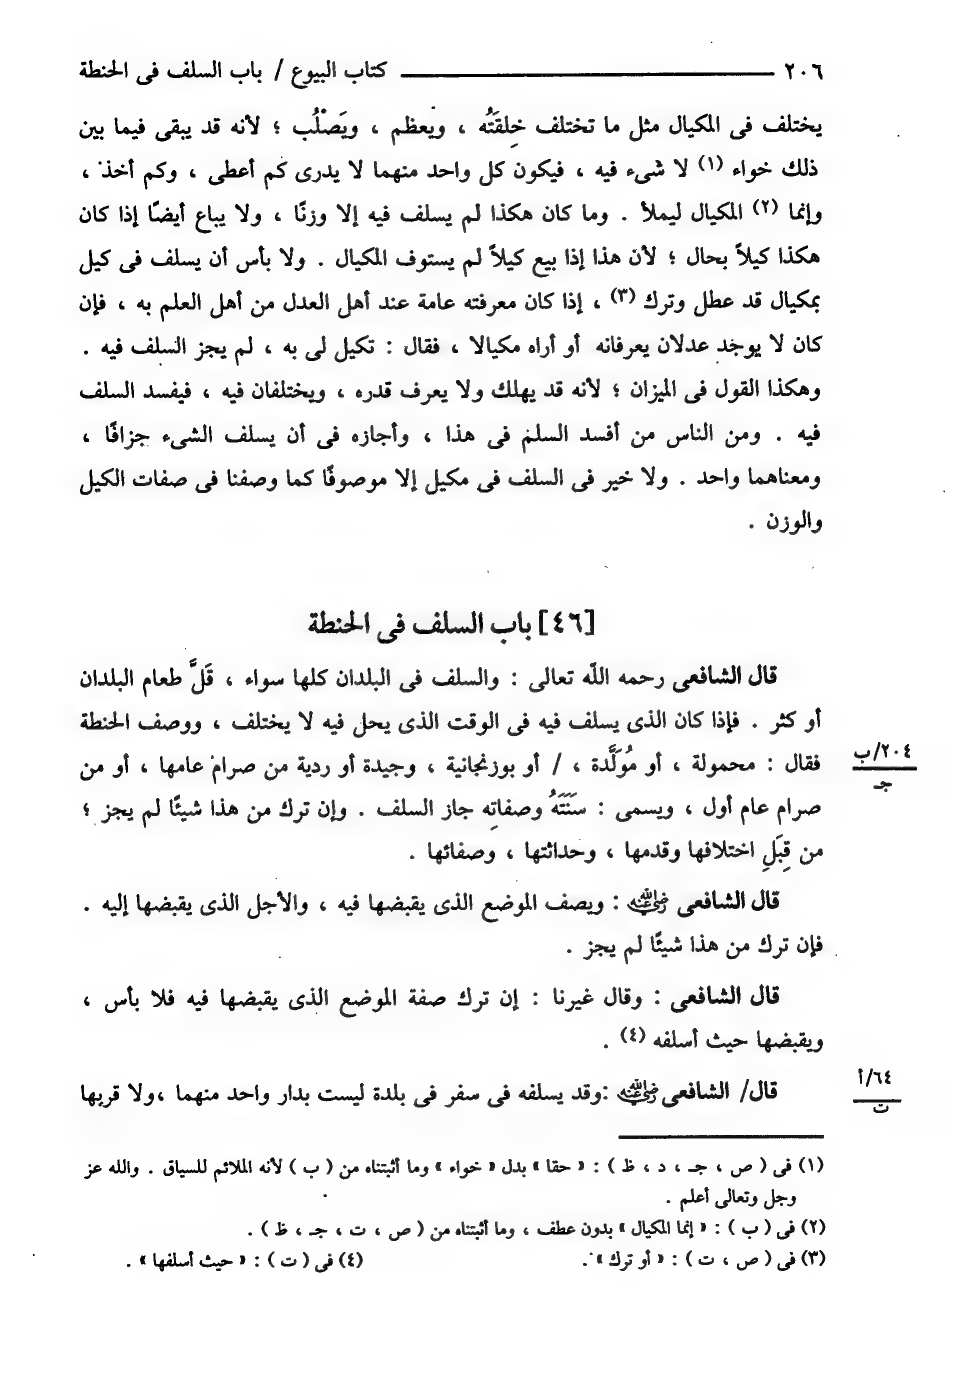 ٢٠٦ كتاب البيوع / باب السلف فى الحنطة
يختلف فى المكيال مثل ما تختلف خِلقَتُه ، ويعظم ، ويَصْلُب ؛ لأنه قد يبقى فيما بين
ذلك خواء (١) لا شىء فيه ، فيكون كل واحد منهما لا يدرى كم أعطى ، وكم أخذ ،
وإنما (٢) المكيال ليملأ . وما كان هكذا لم يسلف فيه إلا وزنًا ، ولا يباع أيضًا إذا كان
هكذا كيلاً بحال ؛ لأن هذا إذا بيع كيلاً لم يستوف المكيال . ولا بأس أن يسلف فى كيل
بمكيال قد عطل وترك (٣) ، إذا كان معرفته عامة عند أهل العدل من أهل العلم به ، فإن
كان لا يوجد عدلان يعرفانه أو أراه مكيالا ، فقال : تكيل لى به ، لم يجز السلف فيه .
وهكذا القول فى الميزان ؛ لأنه قد يهلك ولا يعرف قدره ، ويختلفان فيه ، فيفسد السلف
فيه . ومن الناس من أفسد السلم فى هذا ، وأجازه فى أن يسلف الشىء جزافًا ،
ومعناهما واحد . ولا خير فى السلف فى مكيل إلا موصوفًا كما وصفنا فى صفات الكيل
والوزن .
[٤٦] باب السلف فى الحنطة
قال الشافعى رحمه اللّه تعالى : والسلف فى البلدان كلها سواء ، قَلَّ طعام البلدان
أو كثر . فإذا كان الذى يسلف فيه فى الوقت الذى يحل فيه لا يختلف ، ووصف الحنطة
فقال : محمولة ، أو مُوَلَّدة ، / أو بوزنجانية ، وجيدة أو ردية من صرام عامها ، أو من
٢٠٤/ب
جـ
صرام عام أول ، ويسمى : سَنَتَهُ وصفاتِه جاز السلف . وإن ترك من هذا شيئًا لم يجز ؛
من قِبَلِ اختلافها وقدمها ، وحداثتها ، وصفائها .
قال الشافعى رضي الله عنه : ويصف الموضع الذى يقبضها فيه ، والأجل الذى يقبضها إليه .
فإن ترك من هذا شيئًا لم يجز .
قال الشافعى : وقال غيرنا : إن ترك صفة الموضع الذى يقبضها فيه فلا بأس ،
ويقبضها حيث أسلفه (٤) .
٦٤/أ
ت
قال/ الشافعى رضي الله عنه :وقد يسلفه فى سفر فى بلدة ليست بدار واحد منهما ،ولا قربها
(١) فى ( ص ، جـ ، د ، ظ ) : « حقا » بدل « خواء » وما أثبتناه من ( ب ) لأنه الملائم للسياق . والله عز
وجل وتعالى أعلم .
(٢) فى ( ب ) : « إنما المكيال » بدون عطف ، وما أثبتناه من ( ص ، ت ، جـ ، ظ ) .
(٣) فى ( ص ، ت ) : « أو ترك » . (٤) فى ( ت ) : « حيث أسلفها » .